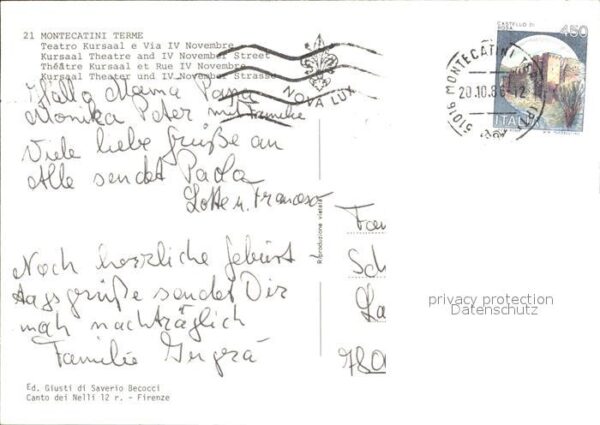 21 MONTECATINI TERME
Teatro Kursaal e Via IV Novembre
Kursaal Theatre and IV November Street
Théâtre Kursaal et Rue IV Novembre
Kursaal Theater und IV. November Strasse
NOVA LUX
CASTELLO DI
450
ITALIA
51016 MONTECATINI
20.10.86-12
Hallo Mama Papa
Monika Peter mit Familie
Viele liebe Grüße an
Alle sendet Paola
Lotte u. Francesco
Noch herzliche Geburt-
stagsgrüße sendet Dir
nachträglich
Familie
Riproduzione vietata
Fam
Sch
La
780
privacy protection
Datenschutz
Ed. Giusti di Saverio Becocci
Canto dei Nelli 12 r. - Firenze